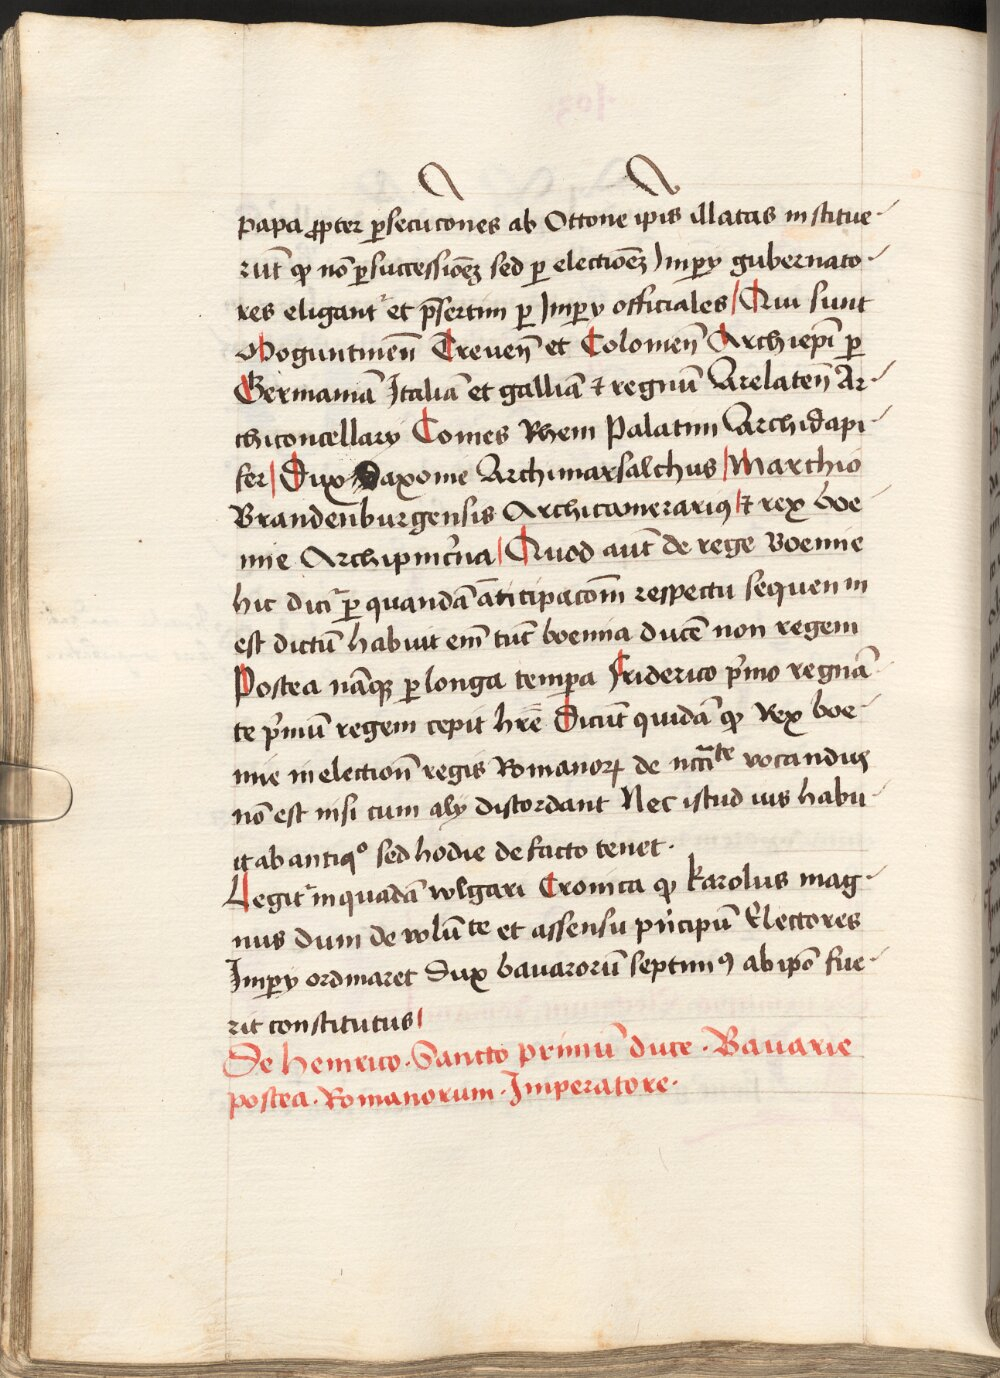 papa ꝓpter ꝑsecucones ab Ottone ipis illatas institue-
rūt ꝙ nō ꝑ successionēꝫ sed ꝑ electionēꝫ Imꝑy gubernato-
res eligant᷑ et p̄sertim ꝑ Imꝑy officiales Qui sunt
Moguntinen̄ Treuen̄ et Colonien̄ Archiep̄i ꝑ
Germaniā Italiā et galliā ⁊ regnū Arelaten̄ Ar-
chicancellary Comes Rheni Palatini Archidapi-
fer Dux Saxonie Archimarsalchus Marchio
Brandenburgensis Archicamerariꝰ ⁊ rex boe
mie Archipinc̄na Quod aut̄ de rege Boemie
hic dici᷑ ꝑ quandā anticipacōm respectu sequencium
est dictū habuit em̄ tūc boemia ducē non regem
Postea nāqꝫ ꝑ longa temꝑa Friderico p̄mo regnā-
te p̄mū regem cepit hr̄e Dicūt quidā ꝙ Rex boe-
mie in electiōn regis Romanoꝝ de nc̄cīte vocandus
nō est nisi cum aly discordant Nec istud ius habu-
it ab antiqᵒ sed hodie de facto tenet.
Legit᷑ in quadā wlgari Cronica ꝙ Karolus mag-
nus dum de volūte et assensu pn̄cipū Electores
Imꝑy ordinaret Dux bauarorū septimꝰ ab ip̄o fue-
rit constitutus
De henrico. Sancto primū duce. Bauarie
postea. Romanorum. Imperatore.